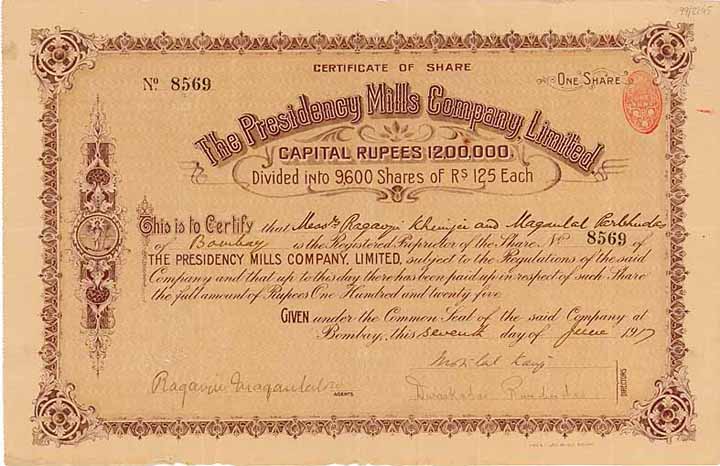 99/2145
CERTIFICATE OF SHARE
No. 8569
ONE SHARE
The Presidency Mills Company, Limited.
CAPITAL RUPEES 12,00,000.
Divided into 9,600 Shares of Rs 125 Each
This is to Certify that Messrs Ragavji Khimjee and Maganlal Parbhudas
of Bombay is the Registered Proprietor of the Share No. 8569 of
THE PRESIDENCY MILLS COMPANY, LIMITED, subject to the Regulations of the said
Company and that up to this day there has been paid up in respect of such Share
the full amount of Rupees One Hundred and twenty five
GIVEN under the Common Seal of the said Company at
Bombay, this seventh day of June 1917
Motilal Kanji
Ragavji Maganlal
AGENTS
DIRECTORS